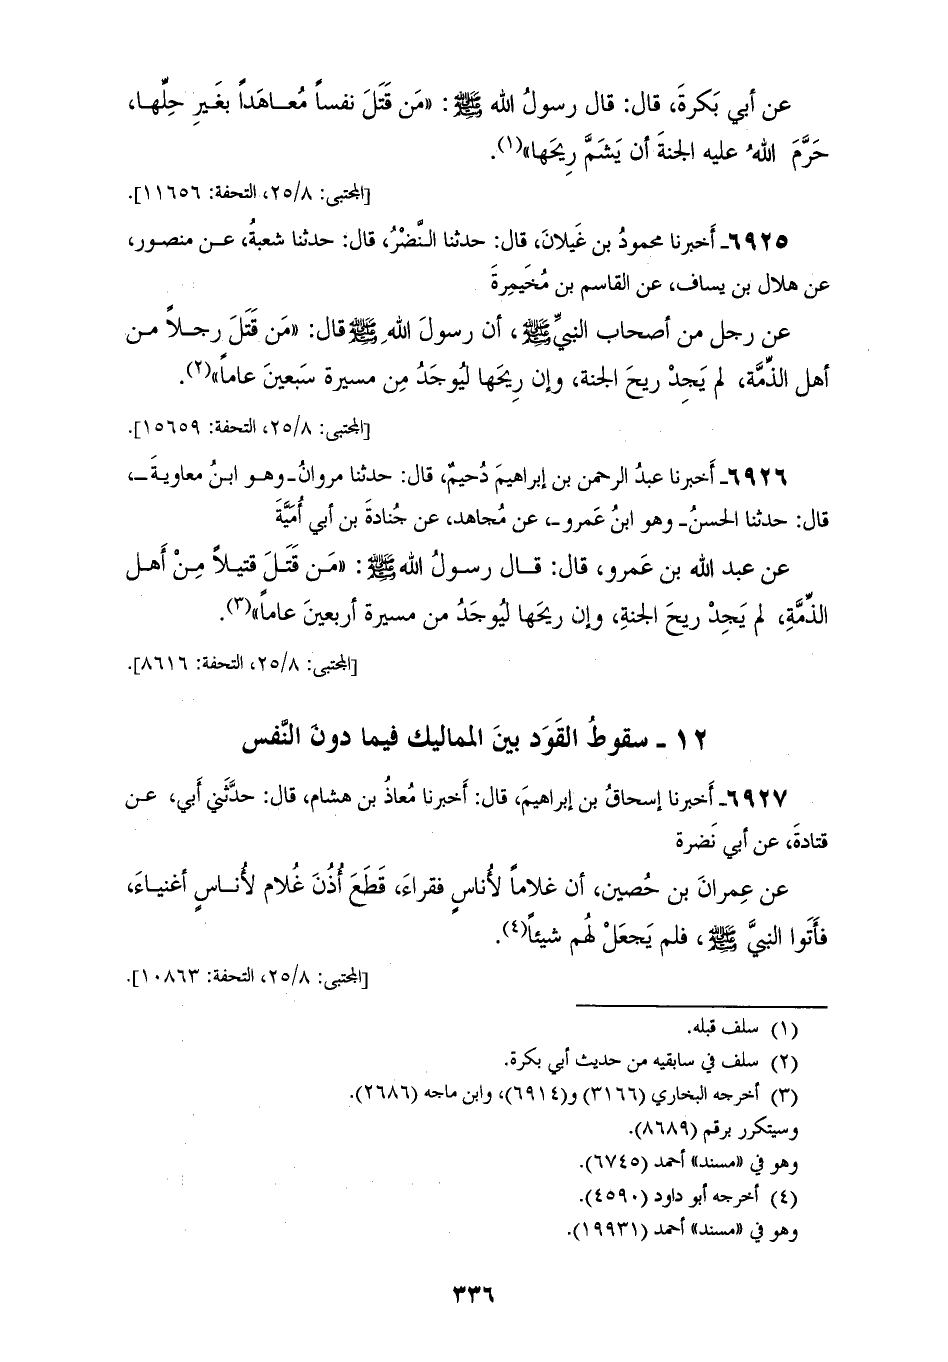 عن أبي بَكرةَ، قال: قال رسولُ الله ﷺ: «مَن قَتَلَ نفساً مُعـاهَداً بغَيرِ حِلِّهـا،
حَرَّمَ اللهُ عليه الجنةَ أن يَشَمَّ رِيحَها»(١).
[المجتبى: ٢٥/٨، التحفة: ١١٦٥٦].
٦٩٢٥ـ أَخبرنا محمودُ بن غَيلانَ، قال: حدثنا النَّضْرُ، قال: حدثنا شعبةُ، عـن منصـور،
عن هلال بن يساف، عن القاسم بن مُخَيمِرةَ
عن رجل من أصحاب النبيِّ ﷺ، أن رسولَ اللهِ ﷺ قال: «مَن قَتَلَ رجـلاً مـن
أهل الذِّمَّة، لم يَجِدْ ريحَ الجنة، وإن رِيحَها ليُوجَدُ مِن مسيرة سَبعينَ عاماً»(٢).
[المجتبى: ٢٥/٨، التحفة: ١٥٦٥٩].
٦٩٢٦ـ أَخبرنا عبدُ الرحمن بن إبراهيمَ دُحيمٌ، قال: حدثنا مروانُ ـ وهـو ابـنُ معاويـةَ ـ،
قال: حدثنا الحسنُ ـ وهو ابنُ عَمرو ـ، عن مُجاهد، عن جُنادةَ بن أبي أُمَيَّةَ
عن عبد الله بن عَمرو، قال: قـال رسـولُ الله ﷺ: «مَـن قَتَـلَ قتيـلاً مِـنْ أَهـل
الذِّمَّةِ، لم يَجِدْ ريحَ الجنةِ، وإن ريحَها ليُوجَدُ من مسيرة أربعينَ عاماً»(٣).
[المجتبى: ٢٥/٨، التحفة: ٨٦١٦].
١٢ ـ سقوطُ القَوَد بينَ المماليك فيما دونَ النَّفس
٦٩٢٧ـ أَخبرنا إسحاقُ بن إبراهيمَ، قال: أَخبرنا مُعاذُ بن هشام، قال: حدَّثَني أَبي، عـن
قتادةَ، عن أبي نَضرة
عن عِمرانَ بن حُصين، أن غلاماً لأُناسٍ فقراءَ، قَطَعَ أُذُنَ غُلام لأُنـاسٍ أغنيـاءَ،
فأَتَوا النبيَّ ﷺ، فلم يَجعَلْ لهُم شيئاً(٤).
[المجتبى: ٢٥/٨، التحفة: ١٠٨٦٣].
(١) سلف قبله.
(٢) سلف في سابقيه من حديث أبي بكرة.
(٣) أخرجه البخاري (٣١٦٦) و(٦٩١٤)، وابن ماجه (٢٦٨٦).
وسيتكرر برقم (٨٦٨٩).
وهو في «مسند» أحمد (٦٧٤٥).
(٤) أخرجه أبو داود (٤٥٩٠).
وهو في «مسند» أحمد (١٩٩٣١).
٣٣٦